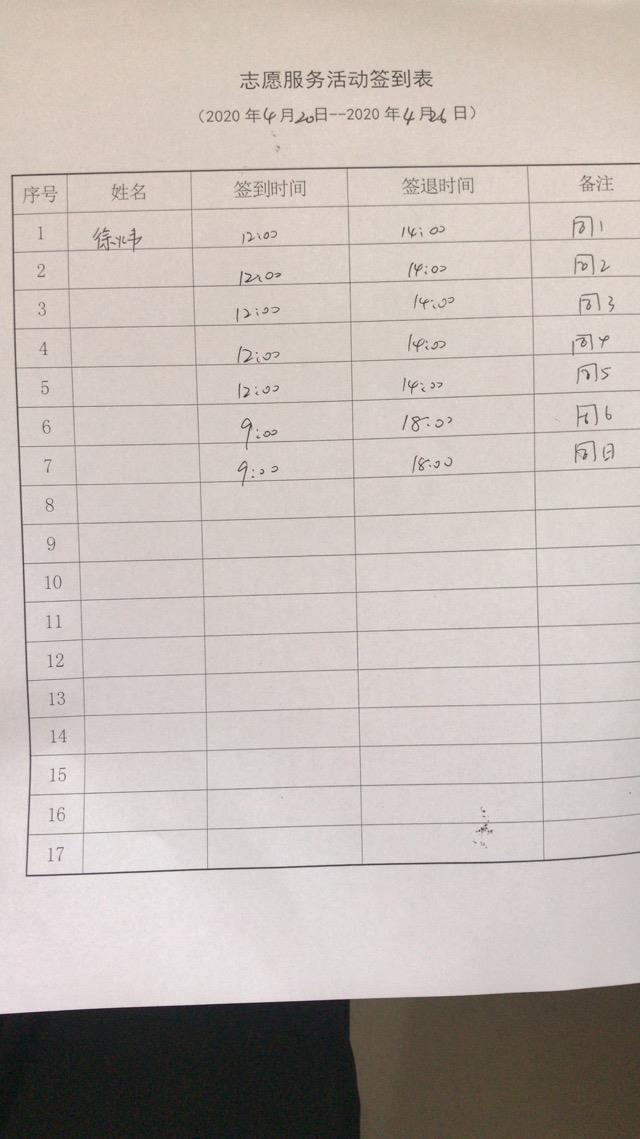 志愿服务活动签到表
（2020 年4月20日--2020 年4月26日）
序号 姓名 签到时间 签退时间 备注
1 徐炜 12:00 14:00 周1
2 12:00 14:00 周2
3 12:00 14:00 周3
4 12:00 14:00 周4
5 12:00 14:00 周5
6 9:00 18:00 周6
7 9:00 18:00 周日
8
9
10
11
12
13
14
15
16
17